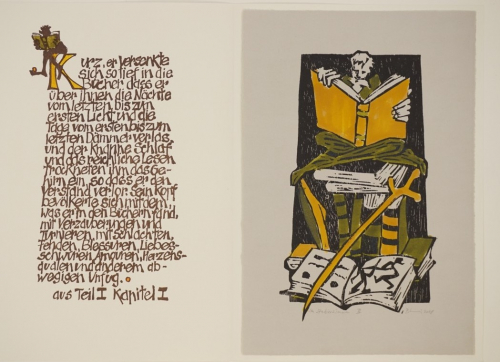 Kurz, er versenkte
sich so tief in die
Bücher, dass er
über ihnen die Nächte
vom letzten bis zum
ersten Licht und die
Tage vom ersten bis zum
letzten Dämmer verlas
und der knappe Schlaf
und das reichliche Lesen
trockneten ihm das Ge-
hirn ein, so dass er den
Verstand verlor. Sein Kopf
bevölkerte sich mit dem
was er in den Büchern fand,
mit Verzauberungen und
Turnieren, mit Schlachten,
Fehden, Blessuren, Liebes-
schwüren, Amouren, Herzens-
qualen und anderem ab-
wegigen Unfug.
aus Teil I Kapitel I